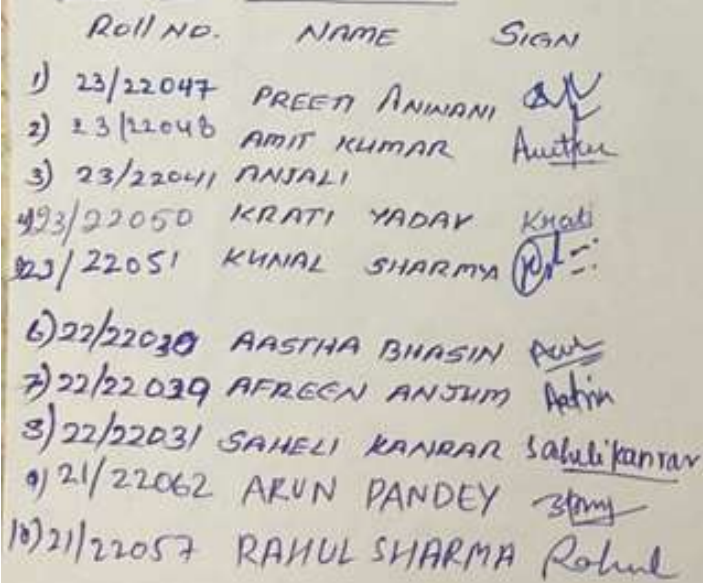 Roll NO. NAME SIGN
1) 23/22047 PREETI ANINANI
2) 23/22048 AMIT KUMAR Amitkr
3) 23/22041 ANJALI
4) 23/22050 KRATI YADAV Krati
5) 23/22051 KUNAL SHARMA
6) 22/22030 AASTHA BHASIN
7) 22/22029 AFREEN ANJUM
8) 22/22031 SAHELI KANRAR Sahelikanrar
9) 21/22062 ARUN PANDEY
10) 21/22057 RAHUL SHARMA Rahul